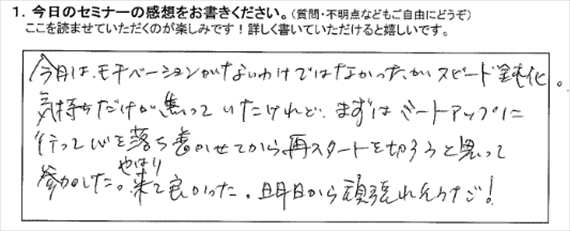 1. 今日のセミナーの感想をお書きください。(質問・不明点などもご自由にどうぞ)
ここを読ませていただくのが楽しみです!詳しく書いていただけると嬉しいです。
今月は、モチベーションがないわけではなかったが、スピード鈍化。
気持ちだけが焦っていたけれど、まずはミートアップに
行って心を落ち着かせてから再スタートを切ろうと思って
参加した。やはり来て良かった。明日から頑張れそうだ!